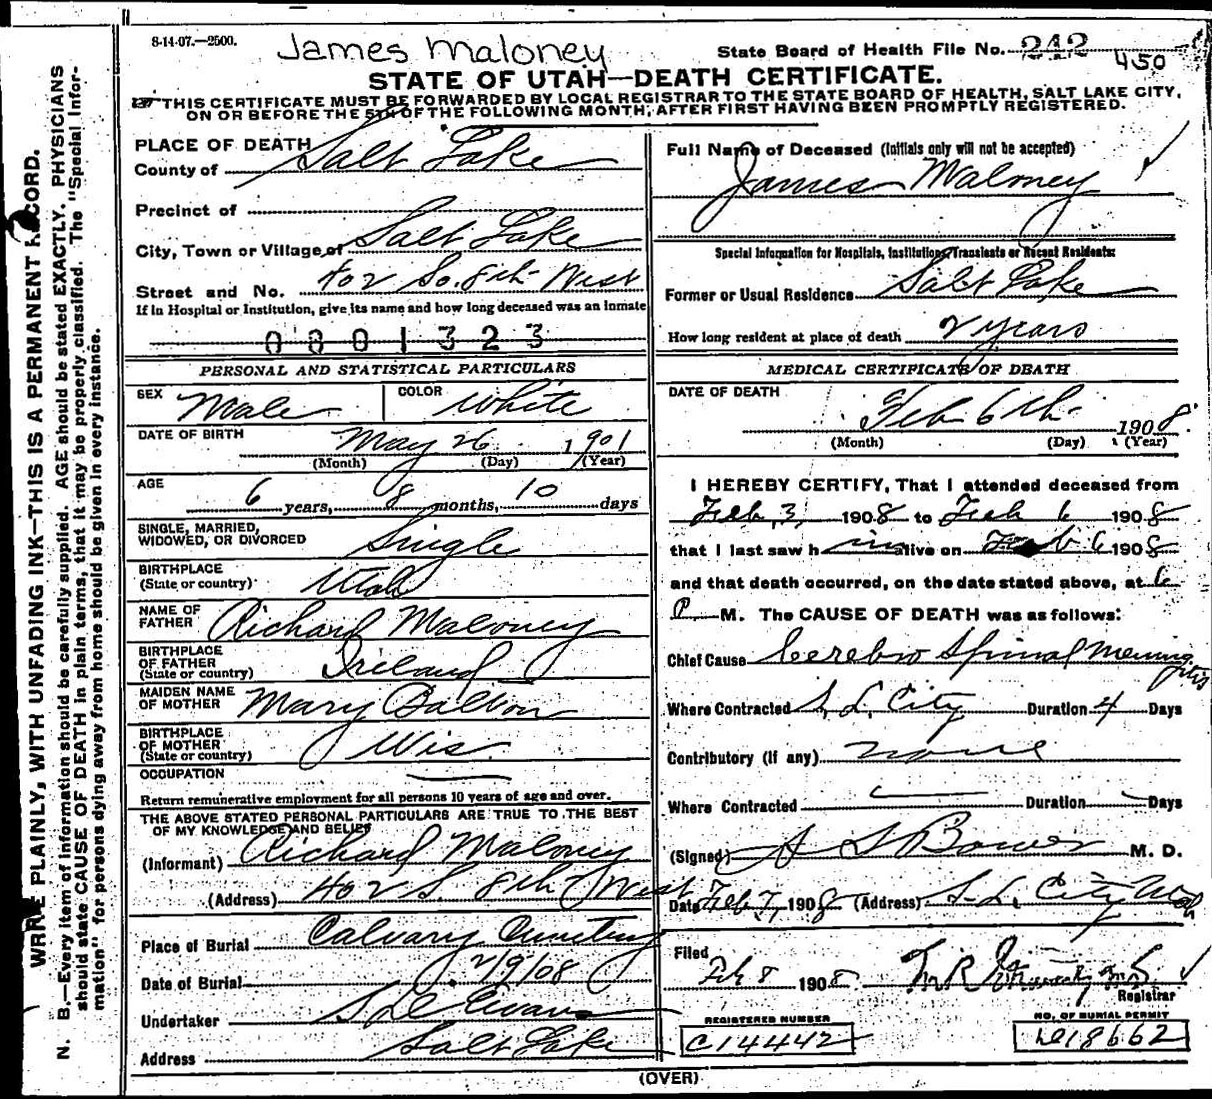 8-14-07.—2500.
James Maloney
State Board of Health File No. 242
450
STATE OF UTAH—DEATH CERTIFICATE.
THIS CERTIFICATE MUST BE FORWARDED BY LOCAL REGISTRAR TO THE STATE BOARD OF HEALTH, SALT LAKE CITY,
ON OR BEFORE THE 5TH OF THE FOLLOWING MONTH, AFTER FIRST HAVING BEEN PROMPTLY REGISTERED.
WRITE PLAINLY, WITH UNFADING INK—THIS IS A PERMANENT RECORD.
N. B.—Every item of information should be carefully supplied. AGE should be stated EXACTLY. PHYSICIANS
should state CAUSE OF DEATH in plain terms, that it may be properly classified. The "Special Infor-
mation" for persons dying away from home should be given in every instance.
PLACE OF DEATH
County of Salt Lake
Precinct of
City, Town or Village of Salt Lake
Street and No. 402 So. 8th West
If in Hospital or Institution, give its name and how long deceased was an inmate
0801323
PERSONAL AND STATISTICAL PARTICULARS
SEX Male COLOR White
DATE OF BIRTH May 26 1901
(Month) (Day) (Year)
AGE 6 years, 8 months, 10 days
SINGLE, MARRIED,
WIDOWED, OR DIVORCED Single
BIRTHPLACE
(State or country) Utah
NAME OF
FATHER Richard Maloney
BIRTHPLACE
OF FATHER
(State or country) Ireland
MAIDEN NAME
OF MOTHER Mary
BIRTHPLACE
OF MOTHER
(State or country) Wis
OCCUPATION
Return remunerative employment for all persons 10 years of age and over.
THE ABOVE STATED PERSONAL PARTICULARS ARE TRUE TO THE BEST
OF MY KNOWLEDGE AND BELIEF
(Informant) Richard Maloney
(Address) 402 S. 8th West
Place of Burial Calvary Cemetery
Date of Burial 2/9/08
Undertaker Evans
Address Salt Lake
Full Name of Deceased (Initials only will not be accepted)
James Maloney
Special Information for Hospitals, Institutions, Transients or Recent Residents:
Former or Usual Residence Salt Lake
How long resident at place of death 2 years
MEDICAL CERTIFICATE OF DEATH
DATE OF DEATH
Feb 6th 1908.
(Month) (Day) (Year)
I HEREBY CERTIFY, That I attended deceased from
Feb, 3, 1908 to Feb 6 1908
that I last saw him alive on Feb 6 1908
and that death occurred, on the date stated above, at 6
P M. The CAUSE OF DEATH was as follows:
Chief Cause Cerebro Spinal Meningitis
Where Contracted S. L. City Duration 4 Days
Contributory (if any) none
Where Contracted Duration Days
(Signed) A S Bower M. D.
Date Feb 7, 1908 (Address) S. L. City Utah
Filed
Feb 8 1908
Registrar
REGISTERED NUMBER
C14442
NO. OF BURIAL PERMIT
18662
(OVER)